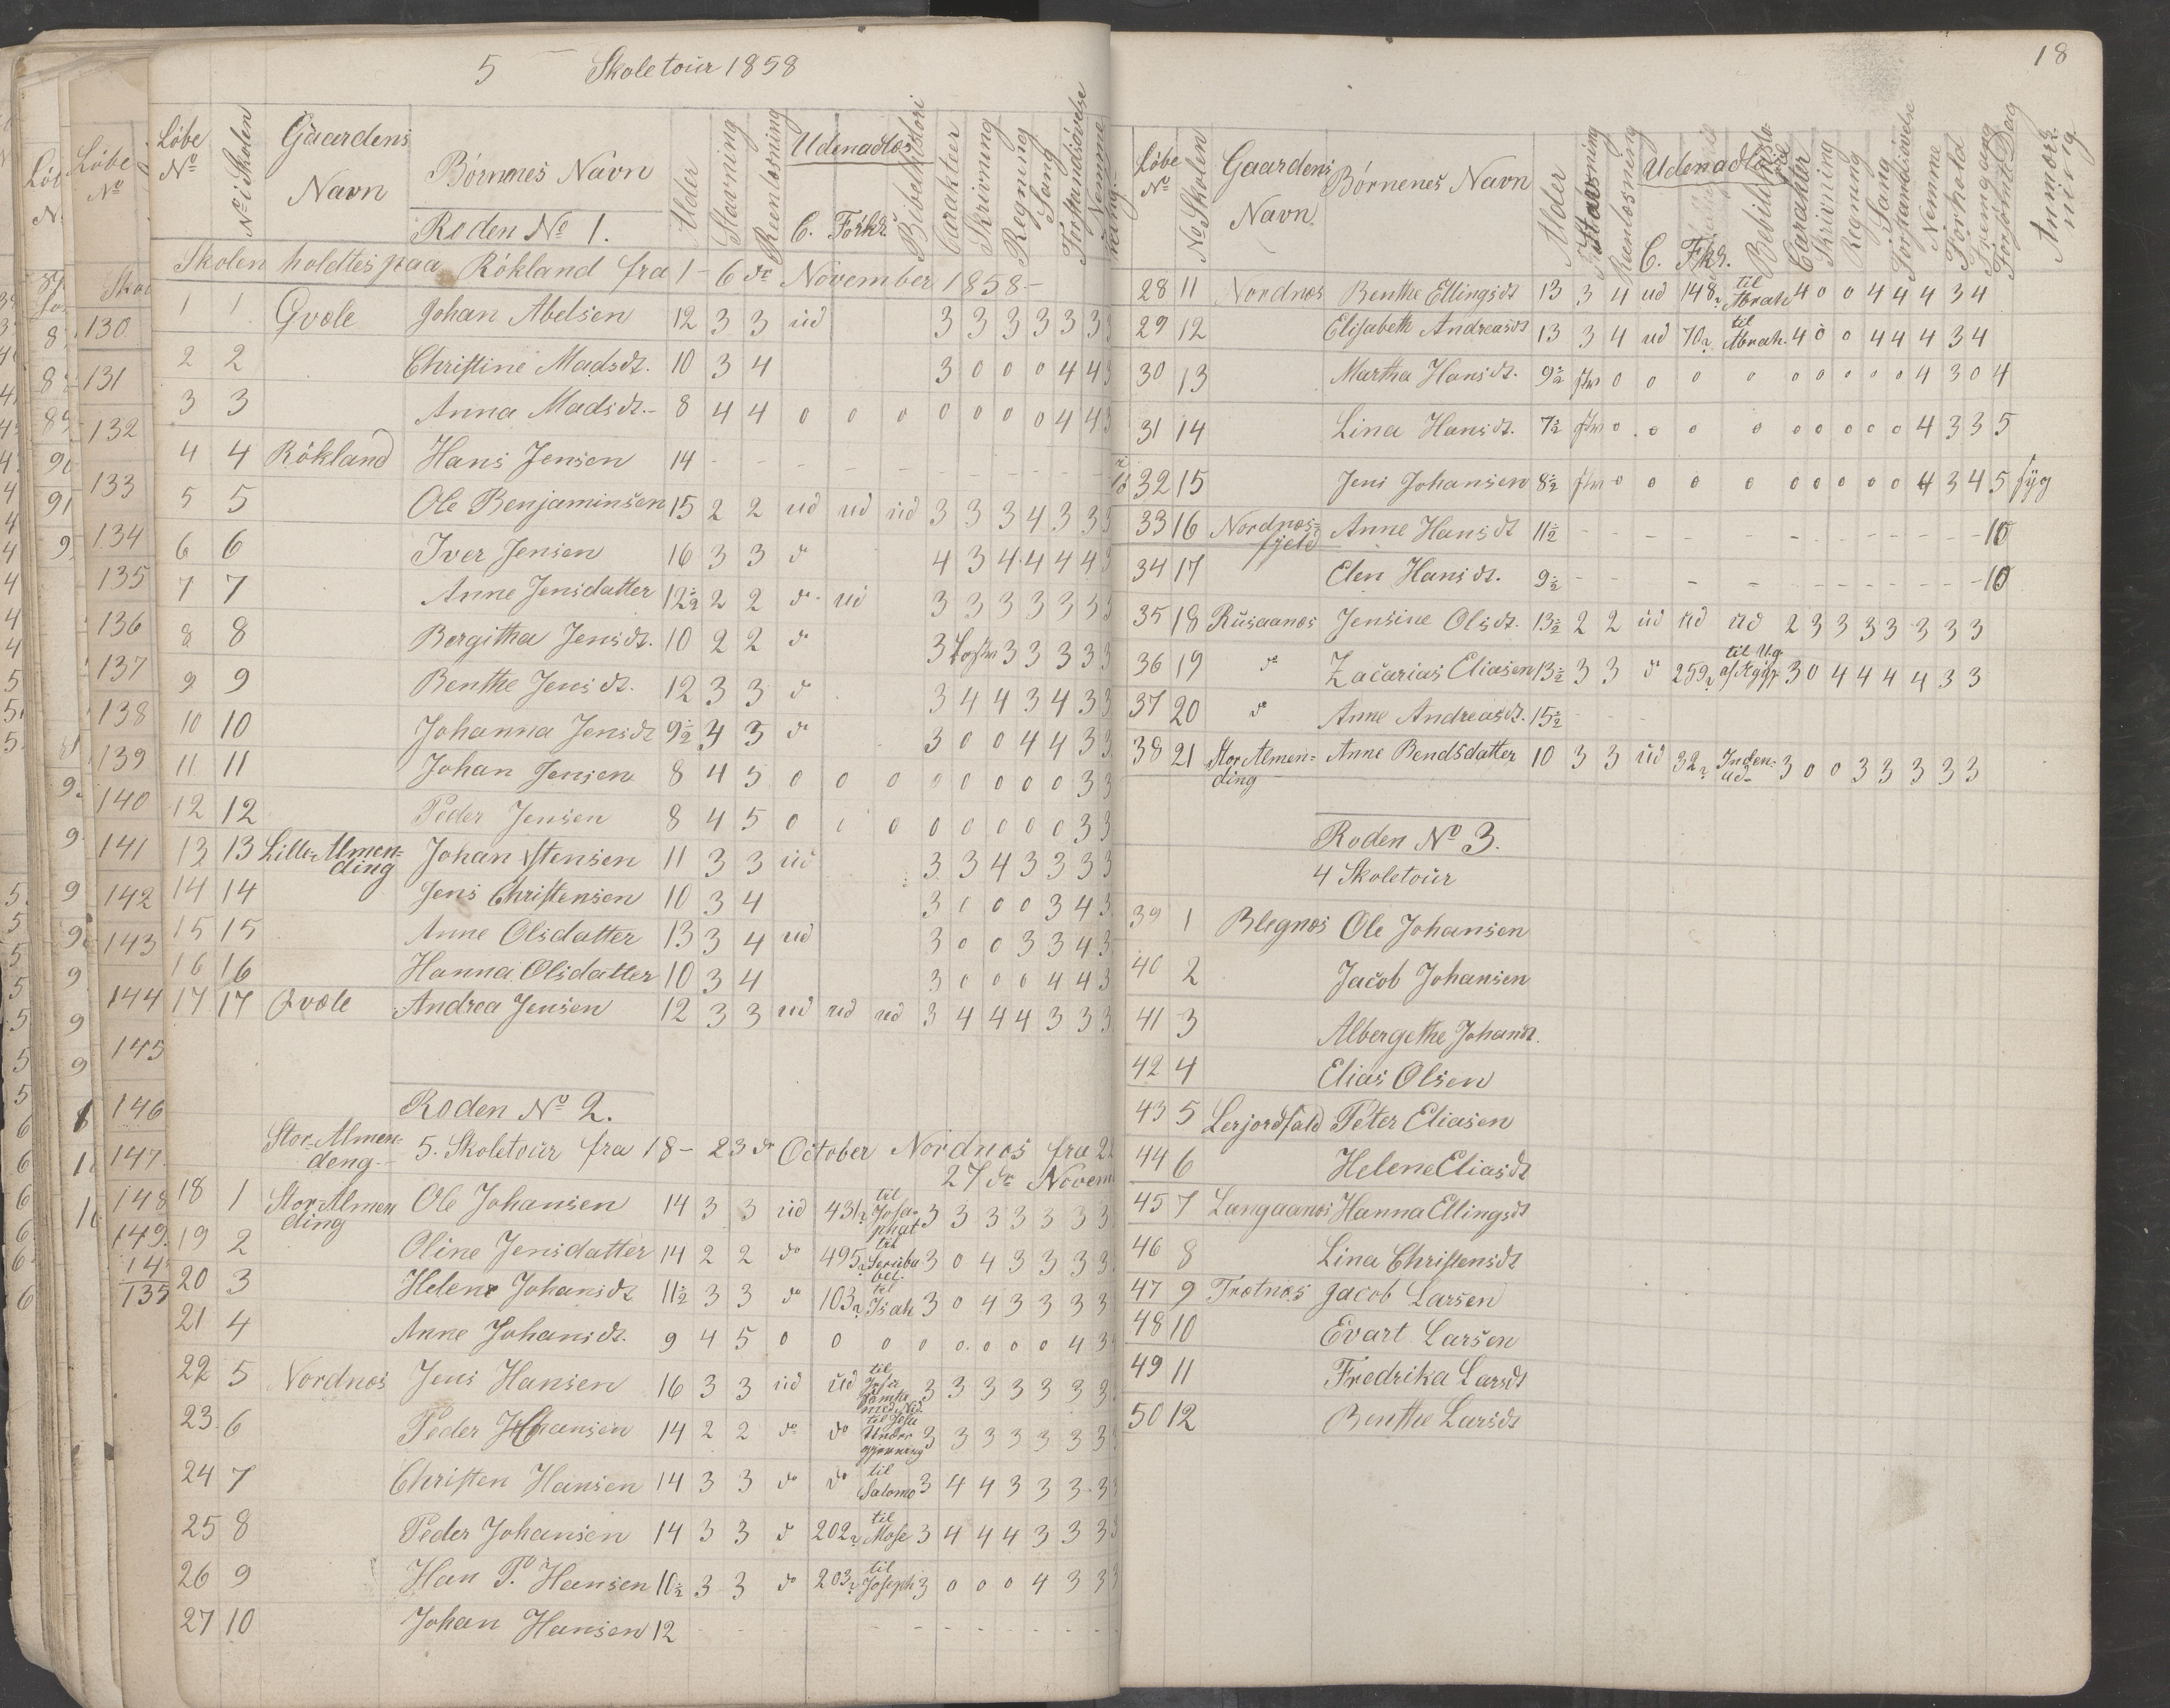 5 Skoletour 1858
Løbe No
No i Skolen
Gaardens Navn
Børnenes Navn
Alder
Stavning
Reenlæsning
Udenadlæs
C. Forkr.
Bibelhistori
Carakteer
Skrivning
Regning
Sang
Forstandsøvelse
Nemme
Roden No 1.
Skolen holdtes paa Rökland fra 1-6 dr November 1858-
1 1 Qvæle Johan Abelsen 12 3 3 ud 3 3 3 3 3 3
2 2 Christine Madsdt. 10 3 4 3 0 0 0 4 4
3 3 Anna Madsdt. 8 4 4 0 0 0 0 0 0 0 4 4
4 4 Rökland Hans Jensen 14 - - - - - - - - - - -
5 5 Ole Benjaminsen 15 2 2 ud ud ud 3 3 3 4 3 3
6 6 Iver Jensen 16 3 3 do 4 3 4 4 4 4
7 7 Anne Jensdatter 12½ 2 2 do ud 3 3 3 3 3 3
8 8 Bergitha Jensdt. 10 2 2 do 3 3 3 3 3
9 9 Benthe Jensdt. 12 3 3 do 3 4 4 3 4 3
10 10 Johanna Jensdt 9½ 4 3 do 3 0 0 4 4 3
11 11 Johan Jensen 8 4 5 0 0 0 0 0 0 0 0 3
12 12 Peder Jensen 8 4 5 0 0 0 0 0 0 0 0 3
13 13 Lille-Almen=ding Johan Stensen 11 3 3 ud 3 3 4 3 3 3
14 14 Jens Christensen 10 3 4 3 0 0 0 3 4
15 15 Anne Olsdatter 13 3 4 ud 3 0 0 3 3 4
16 16 Hanna Olsdatter 10 3 4 3 0 0 0 4 4
17 17 Qvæle Andrea Jensen 12 3 3 ud ud ud 3 4 4 4 3 3
Roden No 2.
Stor-Almen-deng 5. Skoletour fra 18-23 dr October Nordnæs fra 2
27 dr Novem
18 1 Stor-Almending Ole Johansen 14 3 3 ud 431 til Josaphat 3 3 3 3 3 3 3
19 2 Oline Jensdatter 14 2 2 do 495 3 0 4 3 3 3 3
20 3 Helene Johansdt 11½ 3 3 do 103 til Isak 3 0 4 3 3 3 3
21 4 Anne Johansdt. 9 4 5 0 0 0 0 0 0 0 0 4 3
22 5 Nordnæs Jens Hansen 16 3 3 ud ud til 3 3 3 3 3 3 3
23 6 Peder Johansen 14 2 2 do do 3 3 3 3 3 3 3
24 7 Christen Hansen 14 3 3 do do til Salomo 3 4 4 3 3 3 3
25 8 Peder Johansen 14 3 3 do 202 til Mose 3 4 4 4 3 3 3
26 9 Han P. Hansen 10½ 3 3 do 203 til Joseph 3 0 0 0 4 3 3
27 10 Johan Hansen 12 - - - - - - - - - -
18
Løbe No
No Skolen
Gaardens Navn
Børnenes Navn
Alder
Stavning
Reenlæsning
Udenadlæs
C. Fkr.
Carakter
Skrivning
Regning
Sang
Forstandsøvelse
Nemme
Forhold
Fremgang
Forsømt Dag
Anmærkning
28 11 Nordnæs Benthe Ellingsdt 13 3 4 ud 148 til Abrah 4 0 0 4 4 4 3 4
29 12 Elisabeth Andreasdt 13 3 4 ud 70 til Abrah. 4 0 0 4 4 4 3 4
30 13 Martha Hansdt. 9½ stav 0 0 0 0 0 0 0 0 0 4 3 0 4
31 14 Lina Hansdt. 7½ stav 0 0 0 0 0 0 0 0 0 4 3 3 5
32 15 Jens Johansen 8½ stav 0 0 0 0 0 0 0 0 0 4 3 4 5 syg
33 16 Nordnæs=fjeld Anne Hansdt 11½ - - - - - - - - - - 10
34 17 Elen Hansdt. 9½ - - - - - - - - - - 10
35 18 Rusaanæs Jensine Olsdt. 13½ 2 2 ud ud ud 2 3 3 3 3 3 3 3
36 19 do Zacarias Eliasen 13½ 3 3 do 259 til Ug. af Ægyp. 3 0 4 4 4 4 3 3
37 20 do Anne Andreasdt. 15½ - - -
38 21 Stor Almen=ding Anne Bendsdatter 10 3 3 ud 32 Inden-ud- 3 0 0 3 3 3 3 3
Roden No 3.
4 Skoletour
39 1 Blegnæs Ole Johansen
40 2 Jacob Johansen
41 3 Albergethe Johansdt.
42 4 Elias Olsen
43 5 Lerjordfald Peter Eliasen
44 6 Helene Eliasdt
45 7 Langaanæs Hanna Ellingsdt
46 8 Lina Christensdt
47 9 Trætnæs Jacob Larsen
48 10 Evart Larsen
49 11 Fredrika Larsdt
50 12 Benthe Larsdt
Løbe No
130
131
132
133
134
135
136
137
138
139
140
141
142
143
144
145
146
147
148
149
14
135